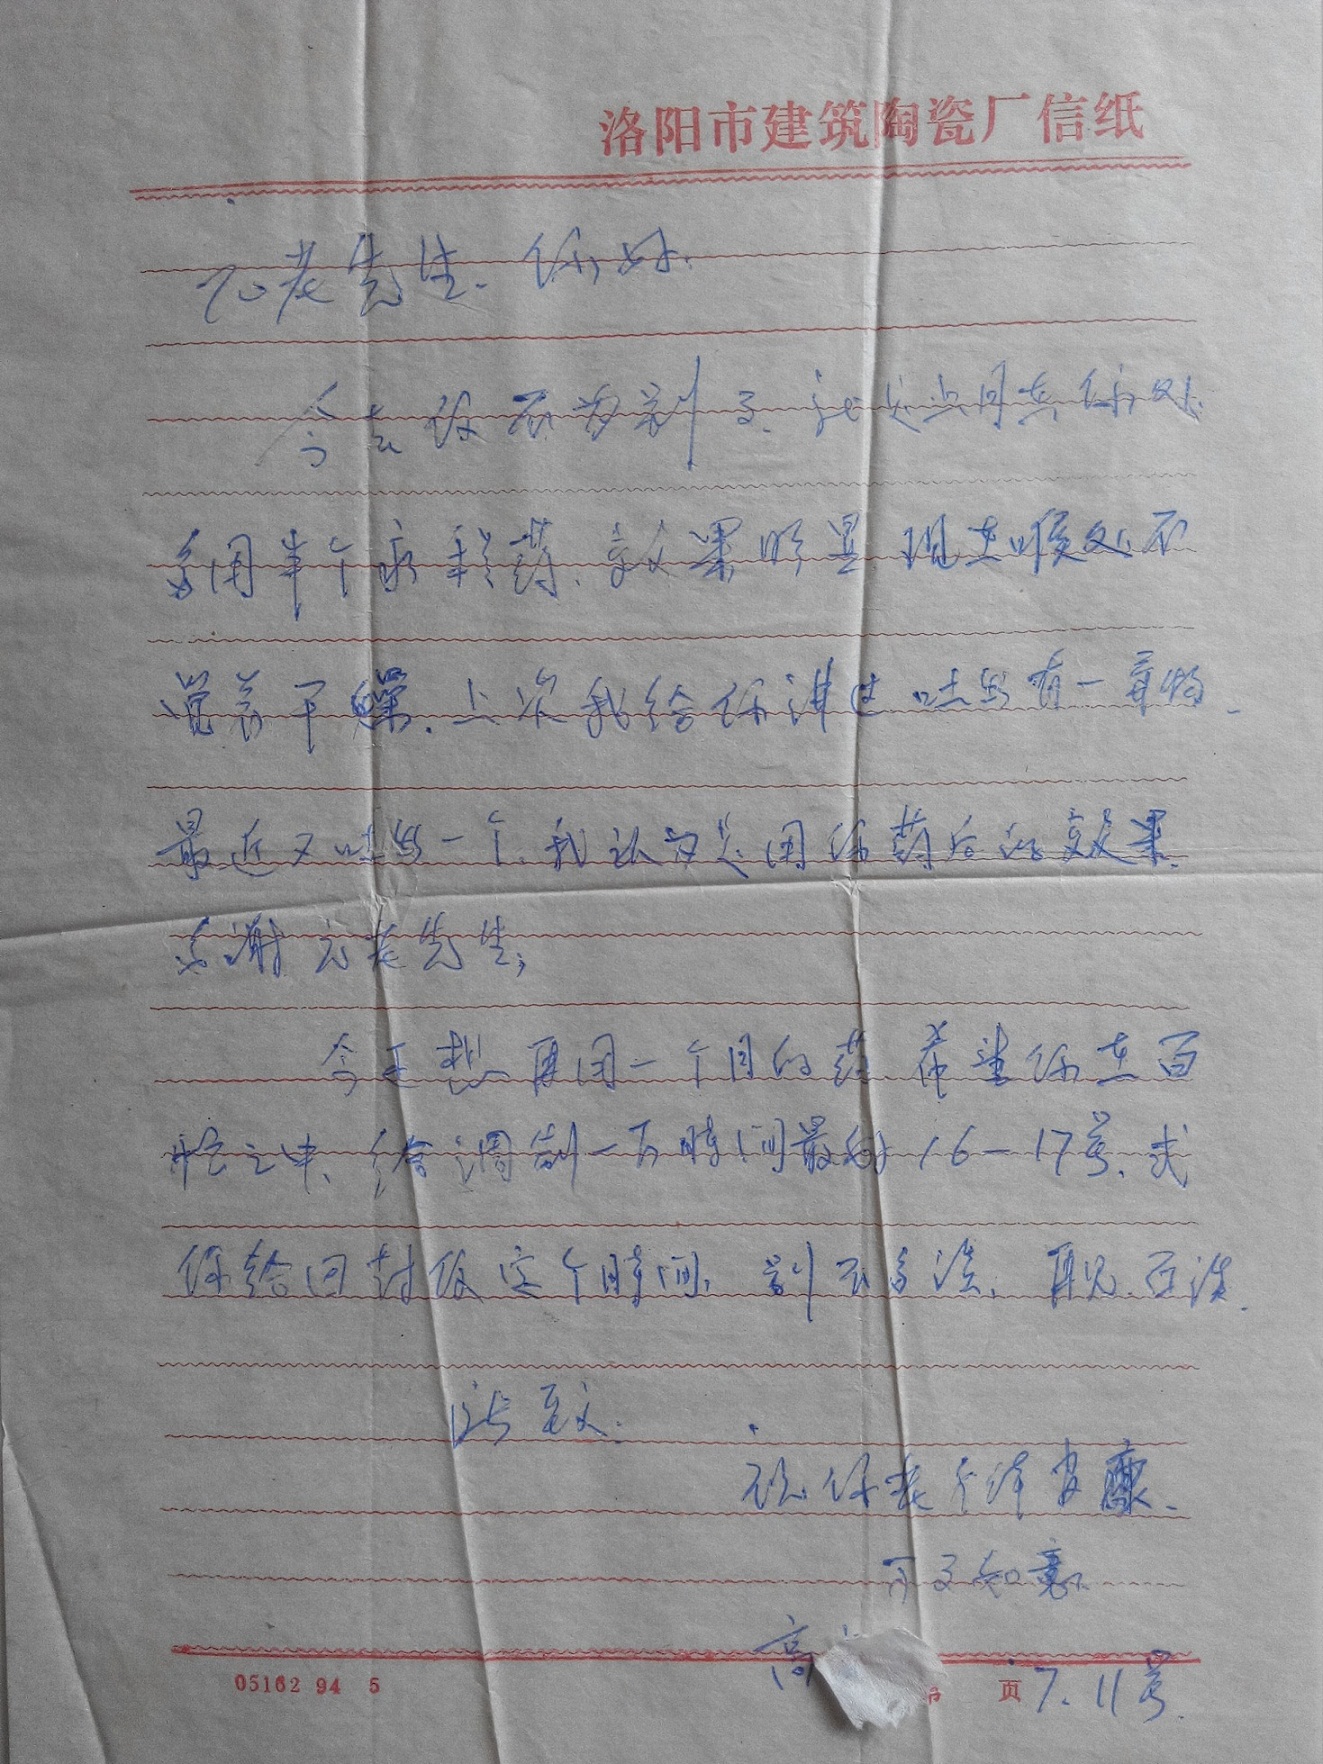 洛阳市建筑陶瓷厂信纸
老先生.你好.
今去信不为别事.就是上月在你处
多用半个疗程药.效果明显现在喉处不
觉着干燥.上次我给你讲过吐出有一音物.
最近又吐出一个.我认为是用你药后的效果.
感谢元老先生;
今天想再用一个月的药希望你在百
忙之中.给调制一下時间最好16-17号.或
你给回封信定个時间.别不多谈.再见.面谈.
此致.
祝你老身体肖康.
高
页7.11号.
05162 94 5